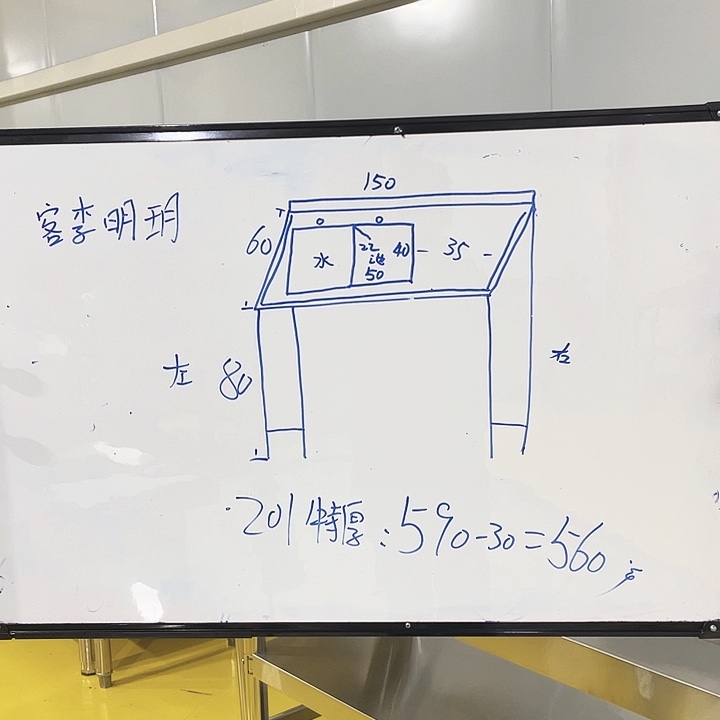 客李明玥
150
60
水
22
池
50
40
35
左
80
右
201特厚:590-30=560